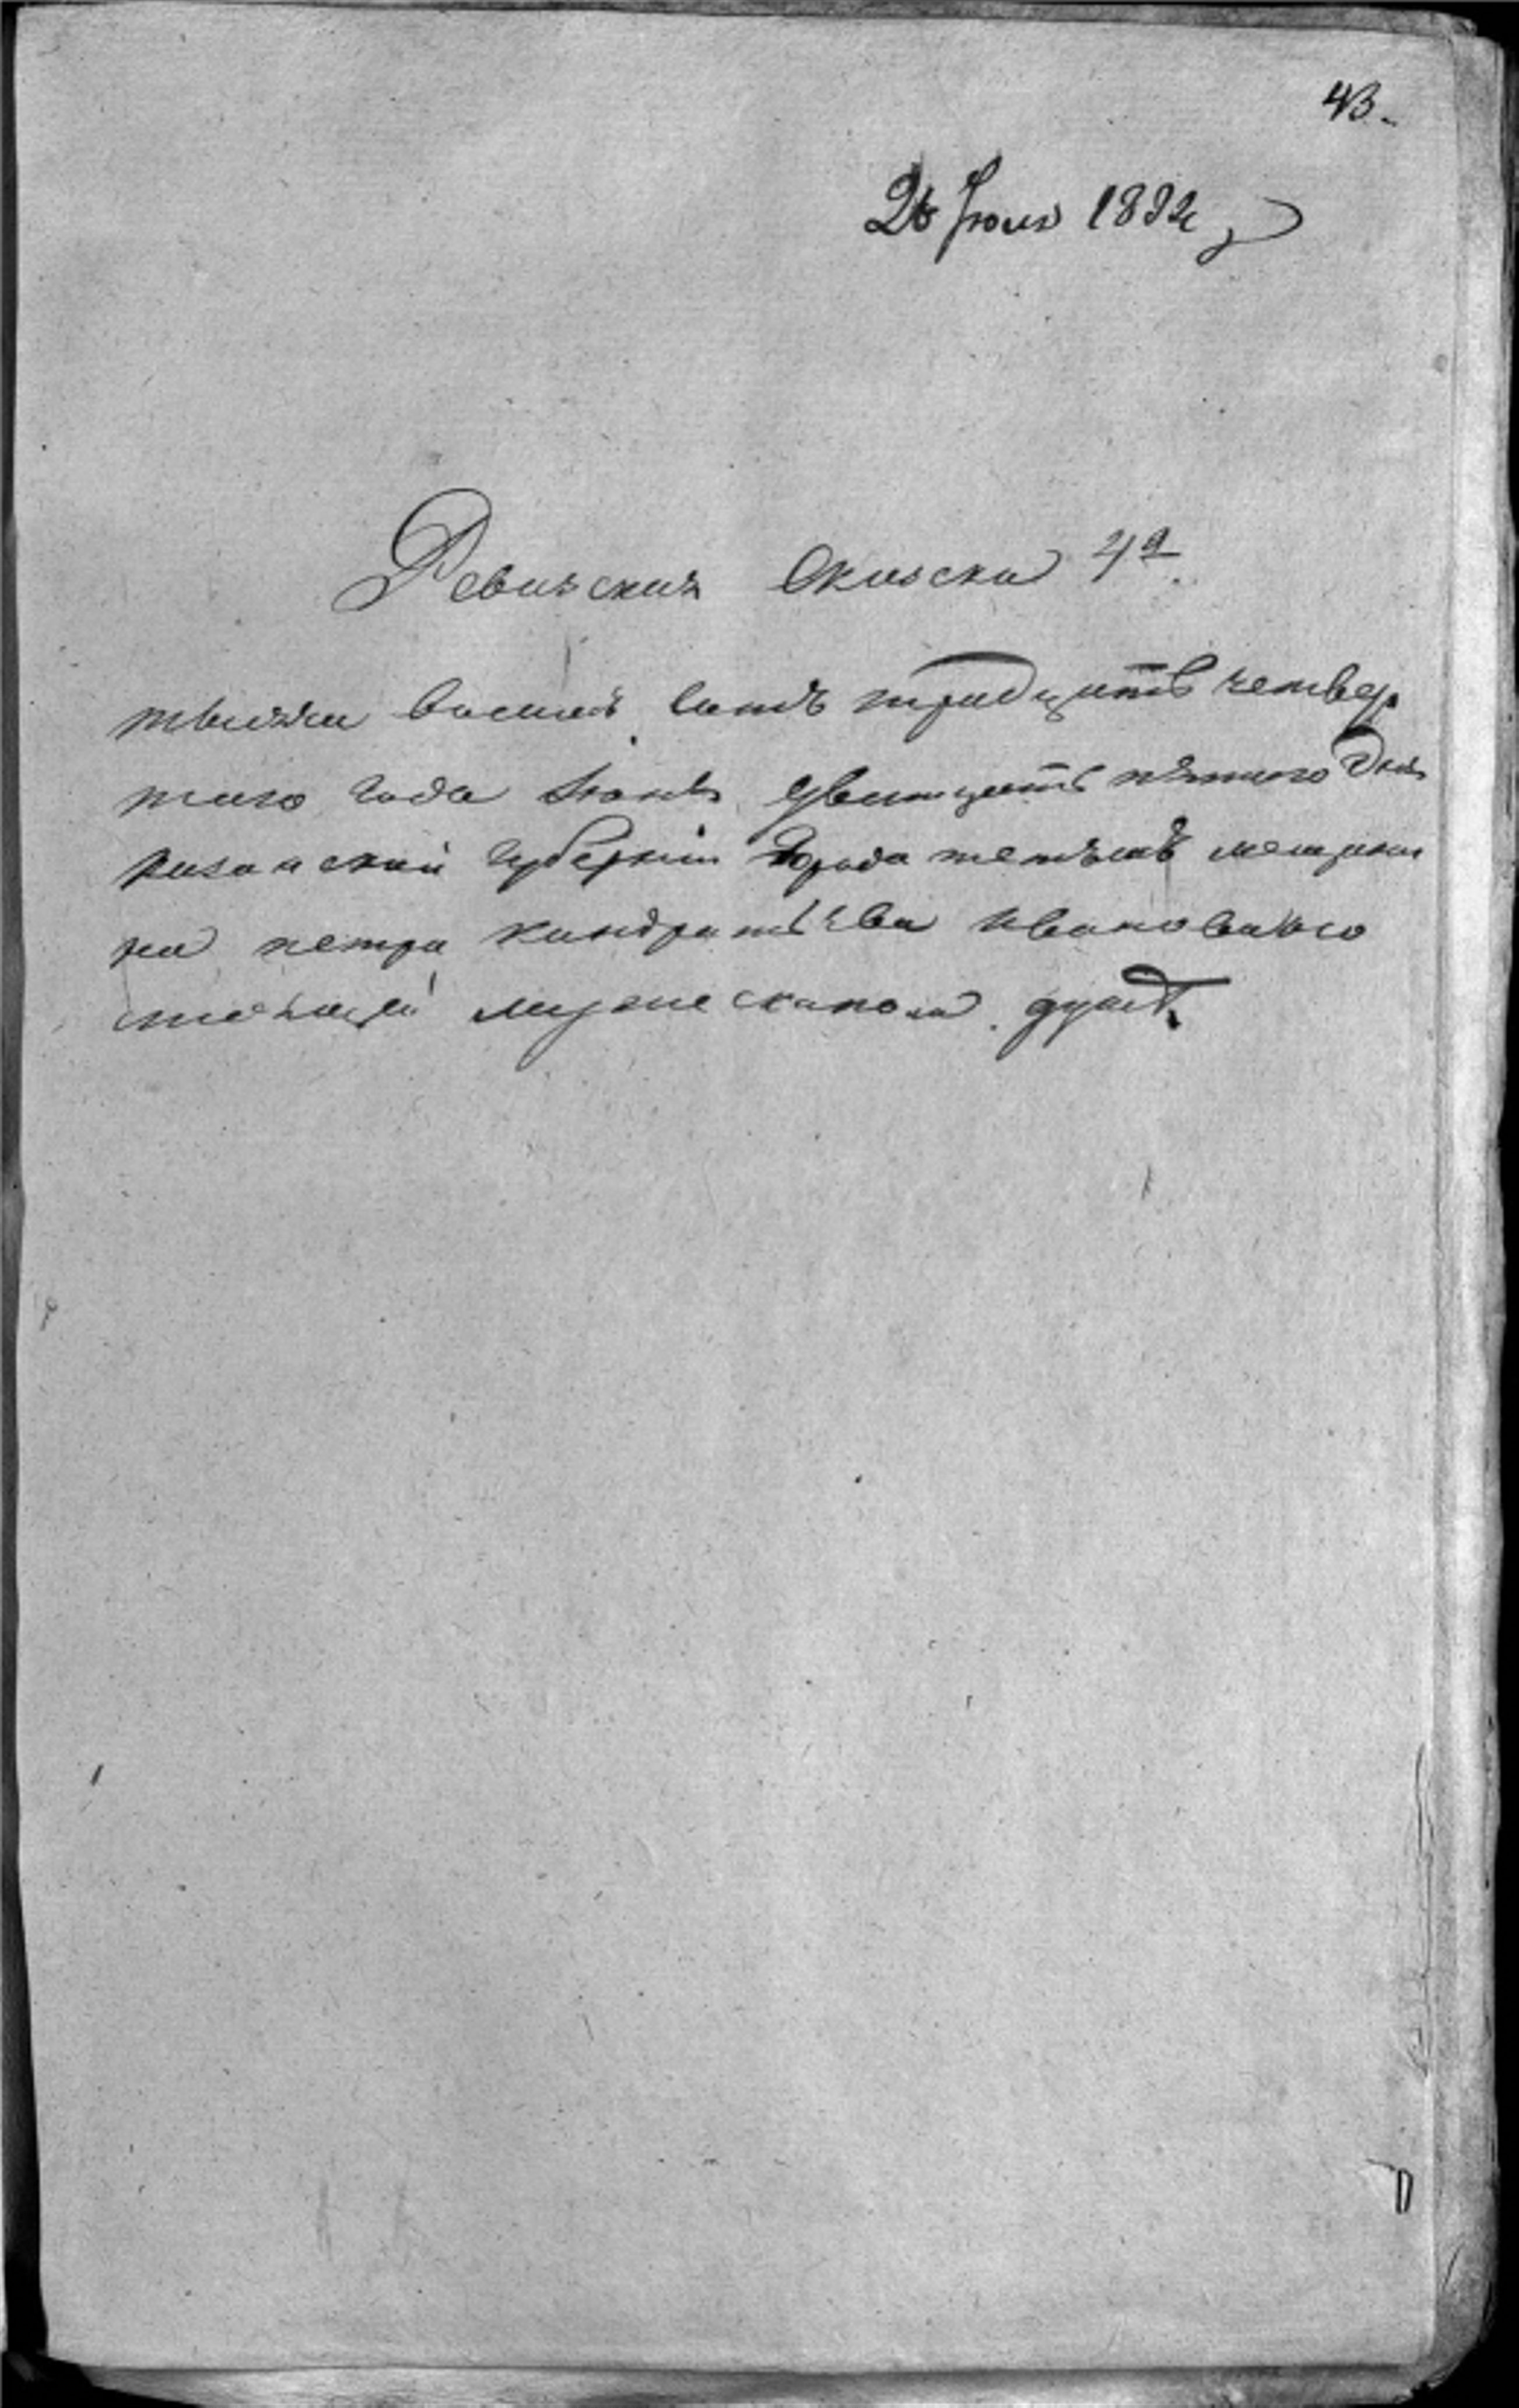 43.
26 Июня 1834
Ревизская Скаска 4я
тысяча восемъ сотъ тридцать четвер
таго года июня дватцать пятого дня
казанской губернии города тетюшъ мещани
на петра кандратьева иванованово
состоящей мужеска пола душъ